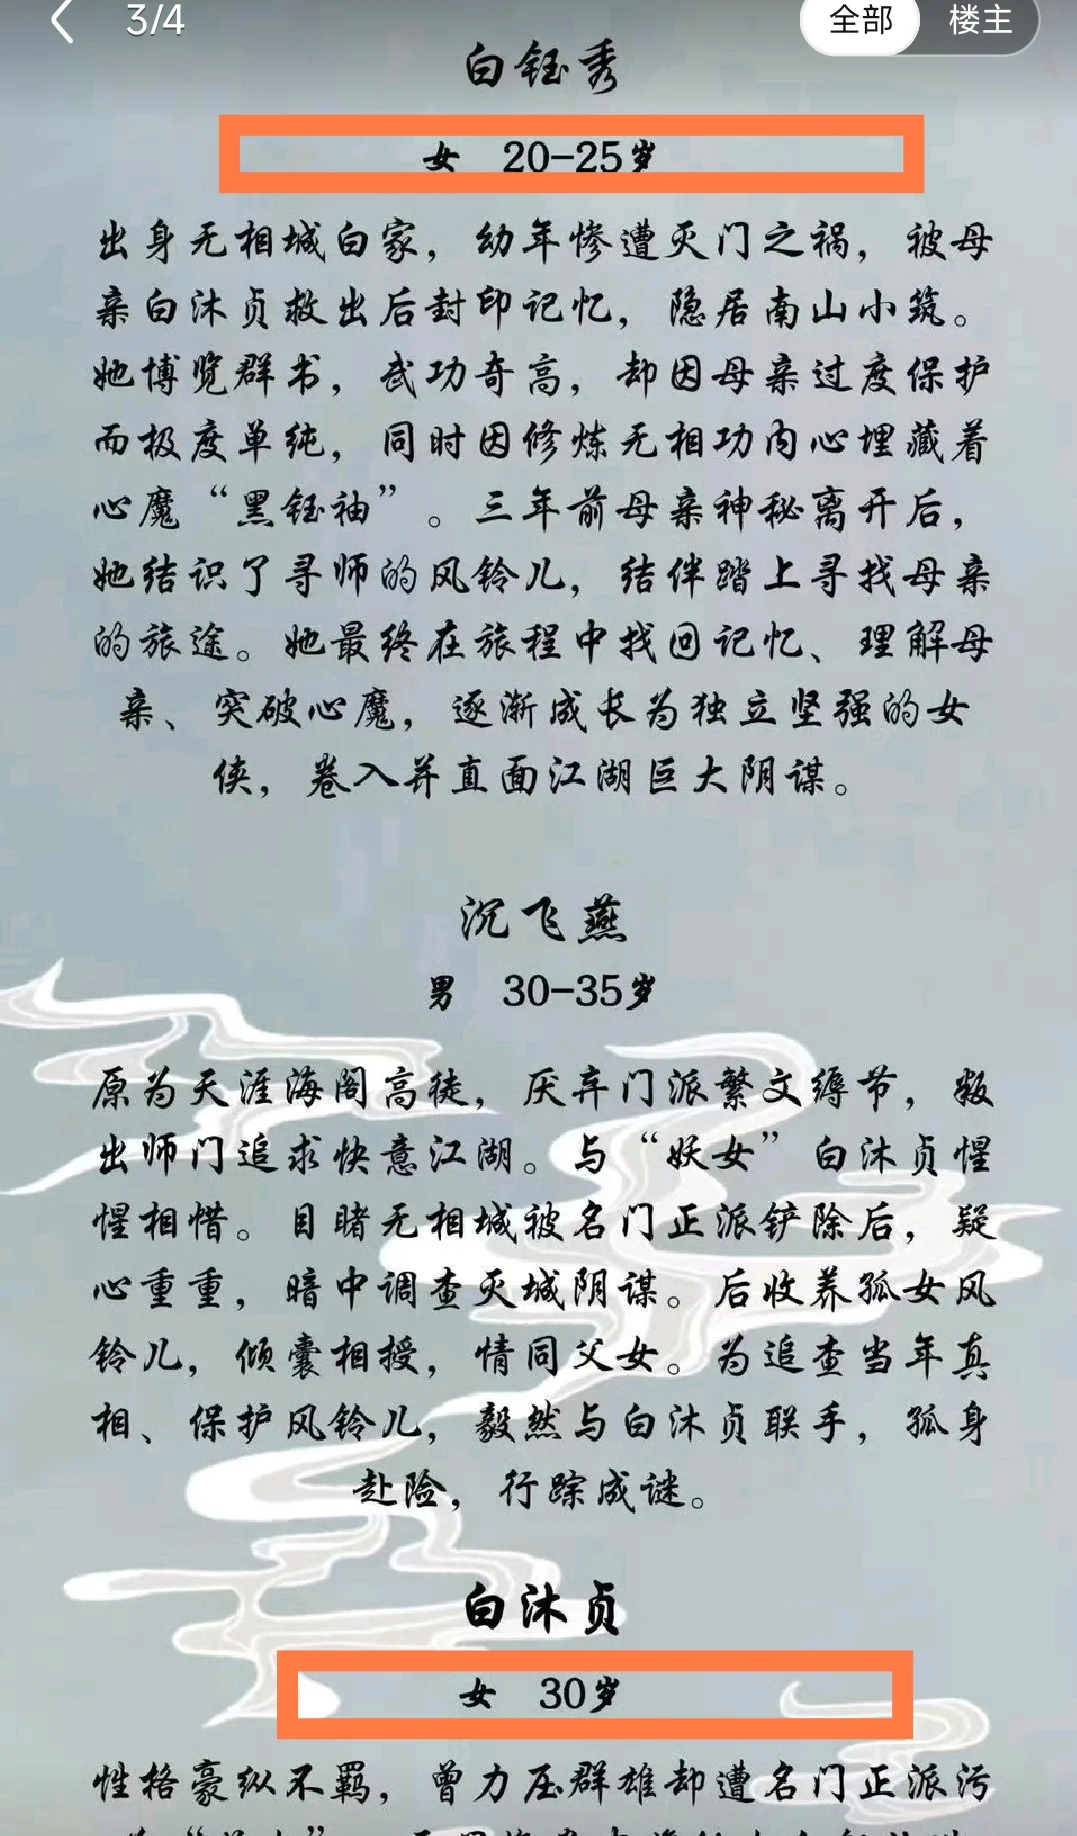 3/4
全部 楼主
白钰秀
女 20-25岁
出身无相城白家，幼年惨遭灭门之祸，被母
亲白沐贞救出后封印记忆，隐居南山小筑。
她博览群书，武功奇高，却因母亲过度保护
而极度单纯，同时因修炼无相功内心埋藏着
心魔“黑钰袖”。三年前母亲神秘离开后，
她结识了寻师的风铃儿，结伴踏上寻找母亲
的旅途。她最终在旅程中找回记忆、理解母
亲、突破心魔，逐渐成长为独立坚强的女
侠，卷入并直面江湖巨大阴谋。
沉飞燕
男 30-35岁
原为天涯海阁高徒，厌弃门派繁文缛节，叛
出师门追求快意江湖。与“妖女”白沐贞惺
惺相惜。目睹无相城被名门正派铲除后，疑
心重重，暗中调查灭城阴谋。后收养孤女风
铃儿，倾囊相授，情同父女。为追查当年真
相、保护风铃儿，毅然与白沐贞联手，孤身
赴险，行踪成谜。
白沐贞
女 30岁
性格豪纵不羁，曾力压群雄却遭名门正派污